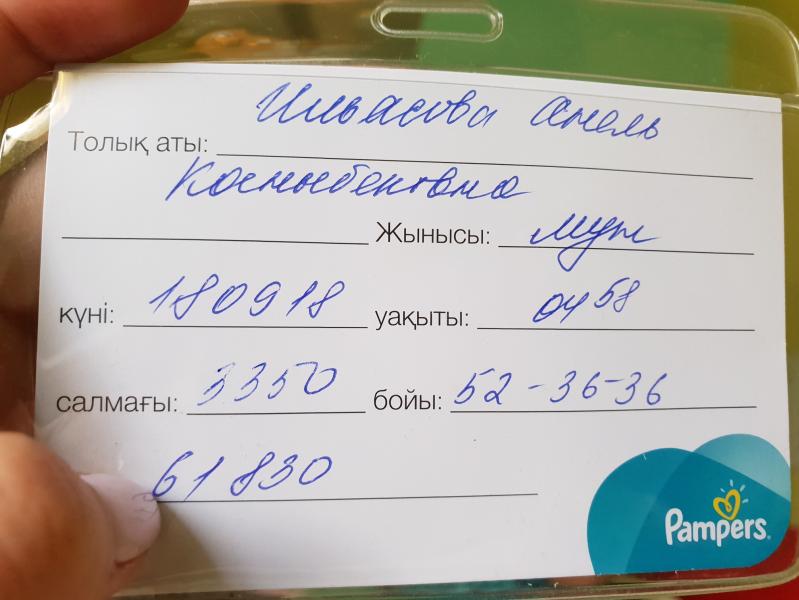 Толық аты: Ильясова Анель
Косныбековна
Жынысы: муж
күні: 180918 уақыты: 04 58
салмағы: 3350 бойы: 52-36-36
61830
Pampers